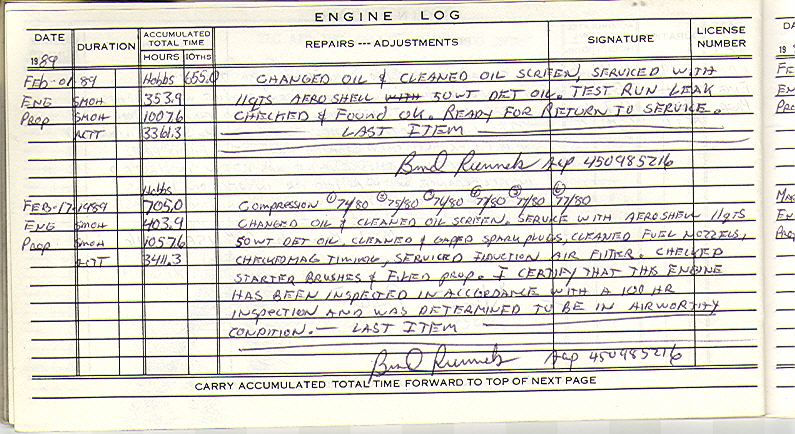 ENGINE LOG
DATE DURATION ACCUMULATED TOTAL TIME REPAIRS --- ADJUSTMENTS SIGNATURE LICENSE NUMBER
1989 HOURS 10THS
FEB-01-89 Hobbs 655.0 CHANGED OIL & CLEANED OIL SCREEN, SERVICED WITH
ENG SMOH 353.9 11QTS AEROSHELL WITH 50WT DET OIL. TEST RUN LEAK
PROP SMOH 1007.6 CHECKED & FOUND OK. READY FOR RETURN TO SERVICE.
ACTT 3361.3 LAST ITEM
A&P 450985216
Hobbs
FEB-17-1989 705.0 COMPRESSION ① 74/80 ② 75/80 ③ 74/80 ④ 77/80 ⑤ 77/80 ⑥ 77/80
ENG SMOH 403.9 CHANGED OIL & CLEANED OIL SCREEN. SERVICE WITH AEROSHELL 11QTS
PROP SMOH 1057.6 50WT DET OIL. CLEANED & GAPPED SPARK PLUGS, CLEANED FUEL NOZZELS,
ACTT 3411.3 CHECKED MAG TIMING, SERVICED INDUCTION AIR FILTER. CHECKED
STARTER BRUSHES & FILED PROP. I CERTIFY THAT THIS ENGINE
HAS BEEN INSPECTED IN ACCORDANCE WITH A 100 HR
INSPECTION AND WAS DETERMINED TO BE IN AIRWORTHY
CONDITION. — LAST ITEM
A&P 450985216
CARRY ACCUMULATED TOTAL TIME FORWARD TO TOP OF NEXT PAGE